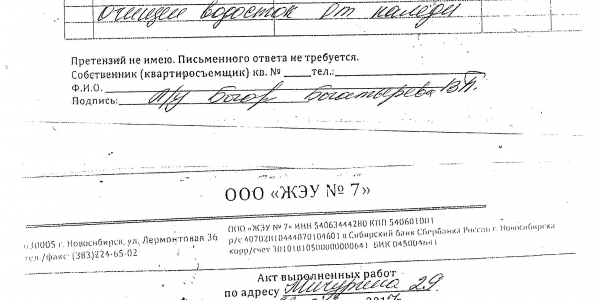 очищен водосток от наледи
Претензий не имею. Письменного ответа не требуется.
Собственник (квартиросъемщик) кв. № _____тел.:____
Ф.И.О.
Подпись: п/у Богатырева В.П.
ООО «ЖЭУ № 7»
630005 г. Новосибирск, ул. Лермонтовая 36
тел./факс (383)224-65-02
ООО «ЖЭУ № 7» ИНН 54063444280 КПП 540601001
р/с 40702810444070104601 в Сибирский банк Сбербанка России г. Новосибирска
корр/счет 30101810500000000641 БИК 045004641
Акт выполненных работ
по адресу Мичурина 29